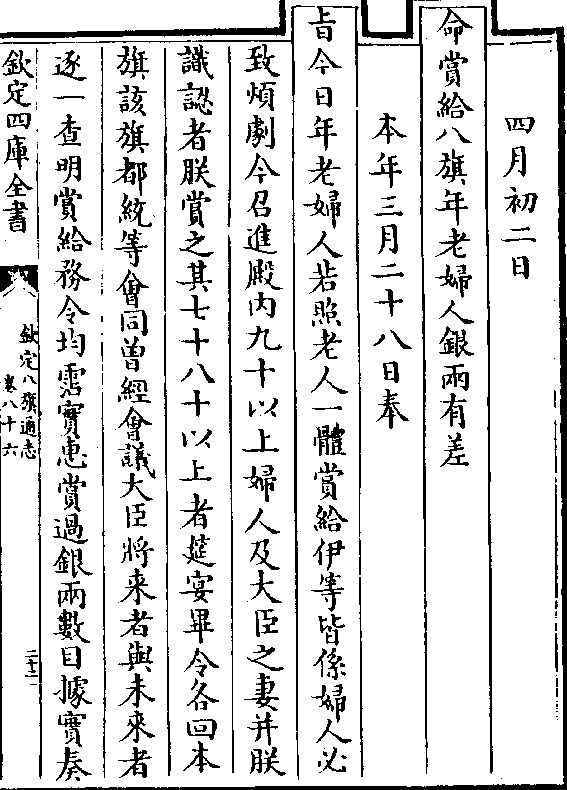 四月初二日
命賞給八旗年老婦人銀兩有差
本年三月二十八日奉
旨今日年老婦人若照老人一體賞給伊等皆係婦人必
致煩劇今召進殿内九十以上婦人及大臣之妻并朕
識認者朕賞之其七十八十以上者筵宴畢令各回本
旗該旗都統等會同曾經會議大臣將来者與未來者
逐一查明賞給務令均霑實惠賞過銀兩數目據實奏
欽定四庫全書
欽定八旗通志
卷八十六
二十三